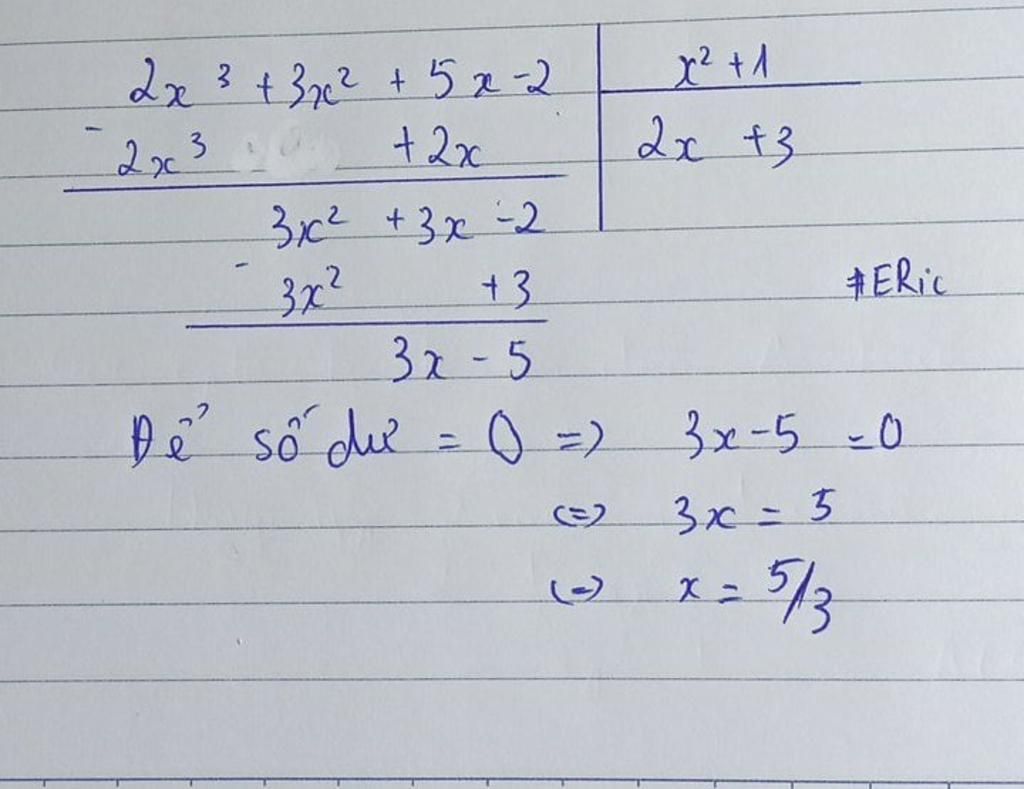 2x³ + 3x² + 5x - 2 | x² + 1
- 2x³ + 2x | 2x + 3
3x² + 3x - 2
- 3x² + 3
#ERic
3x - 5
Để số dư = 0 => 3x - 5 = 0
<=> 3x = 5
<=> x = 5/3